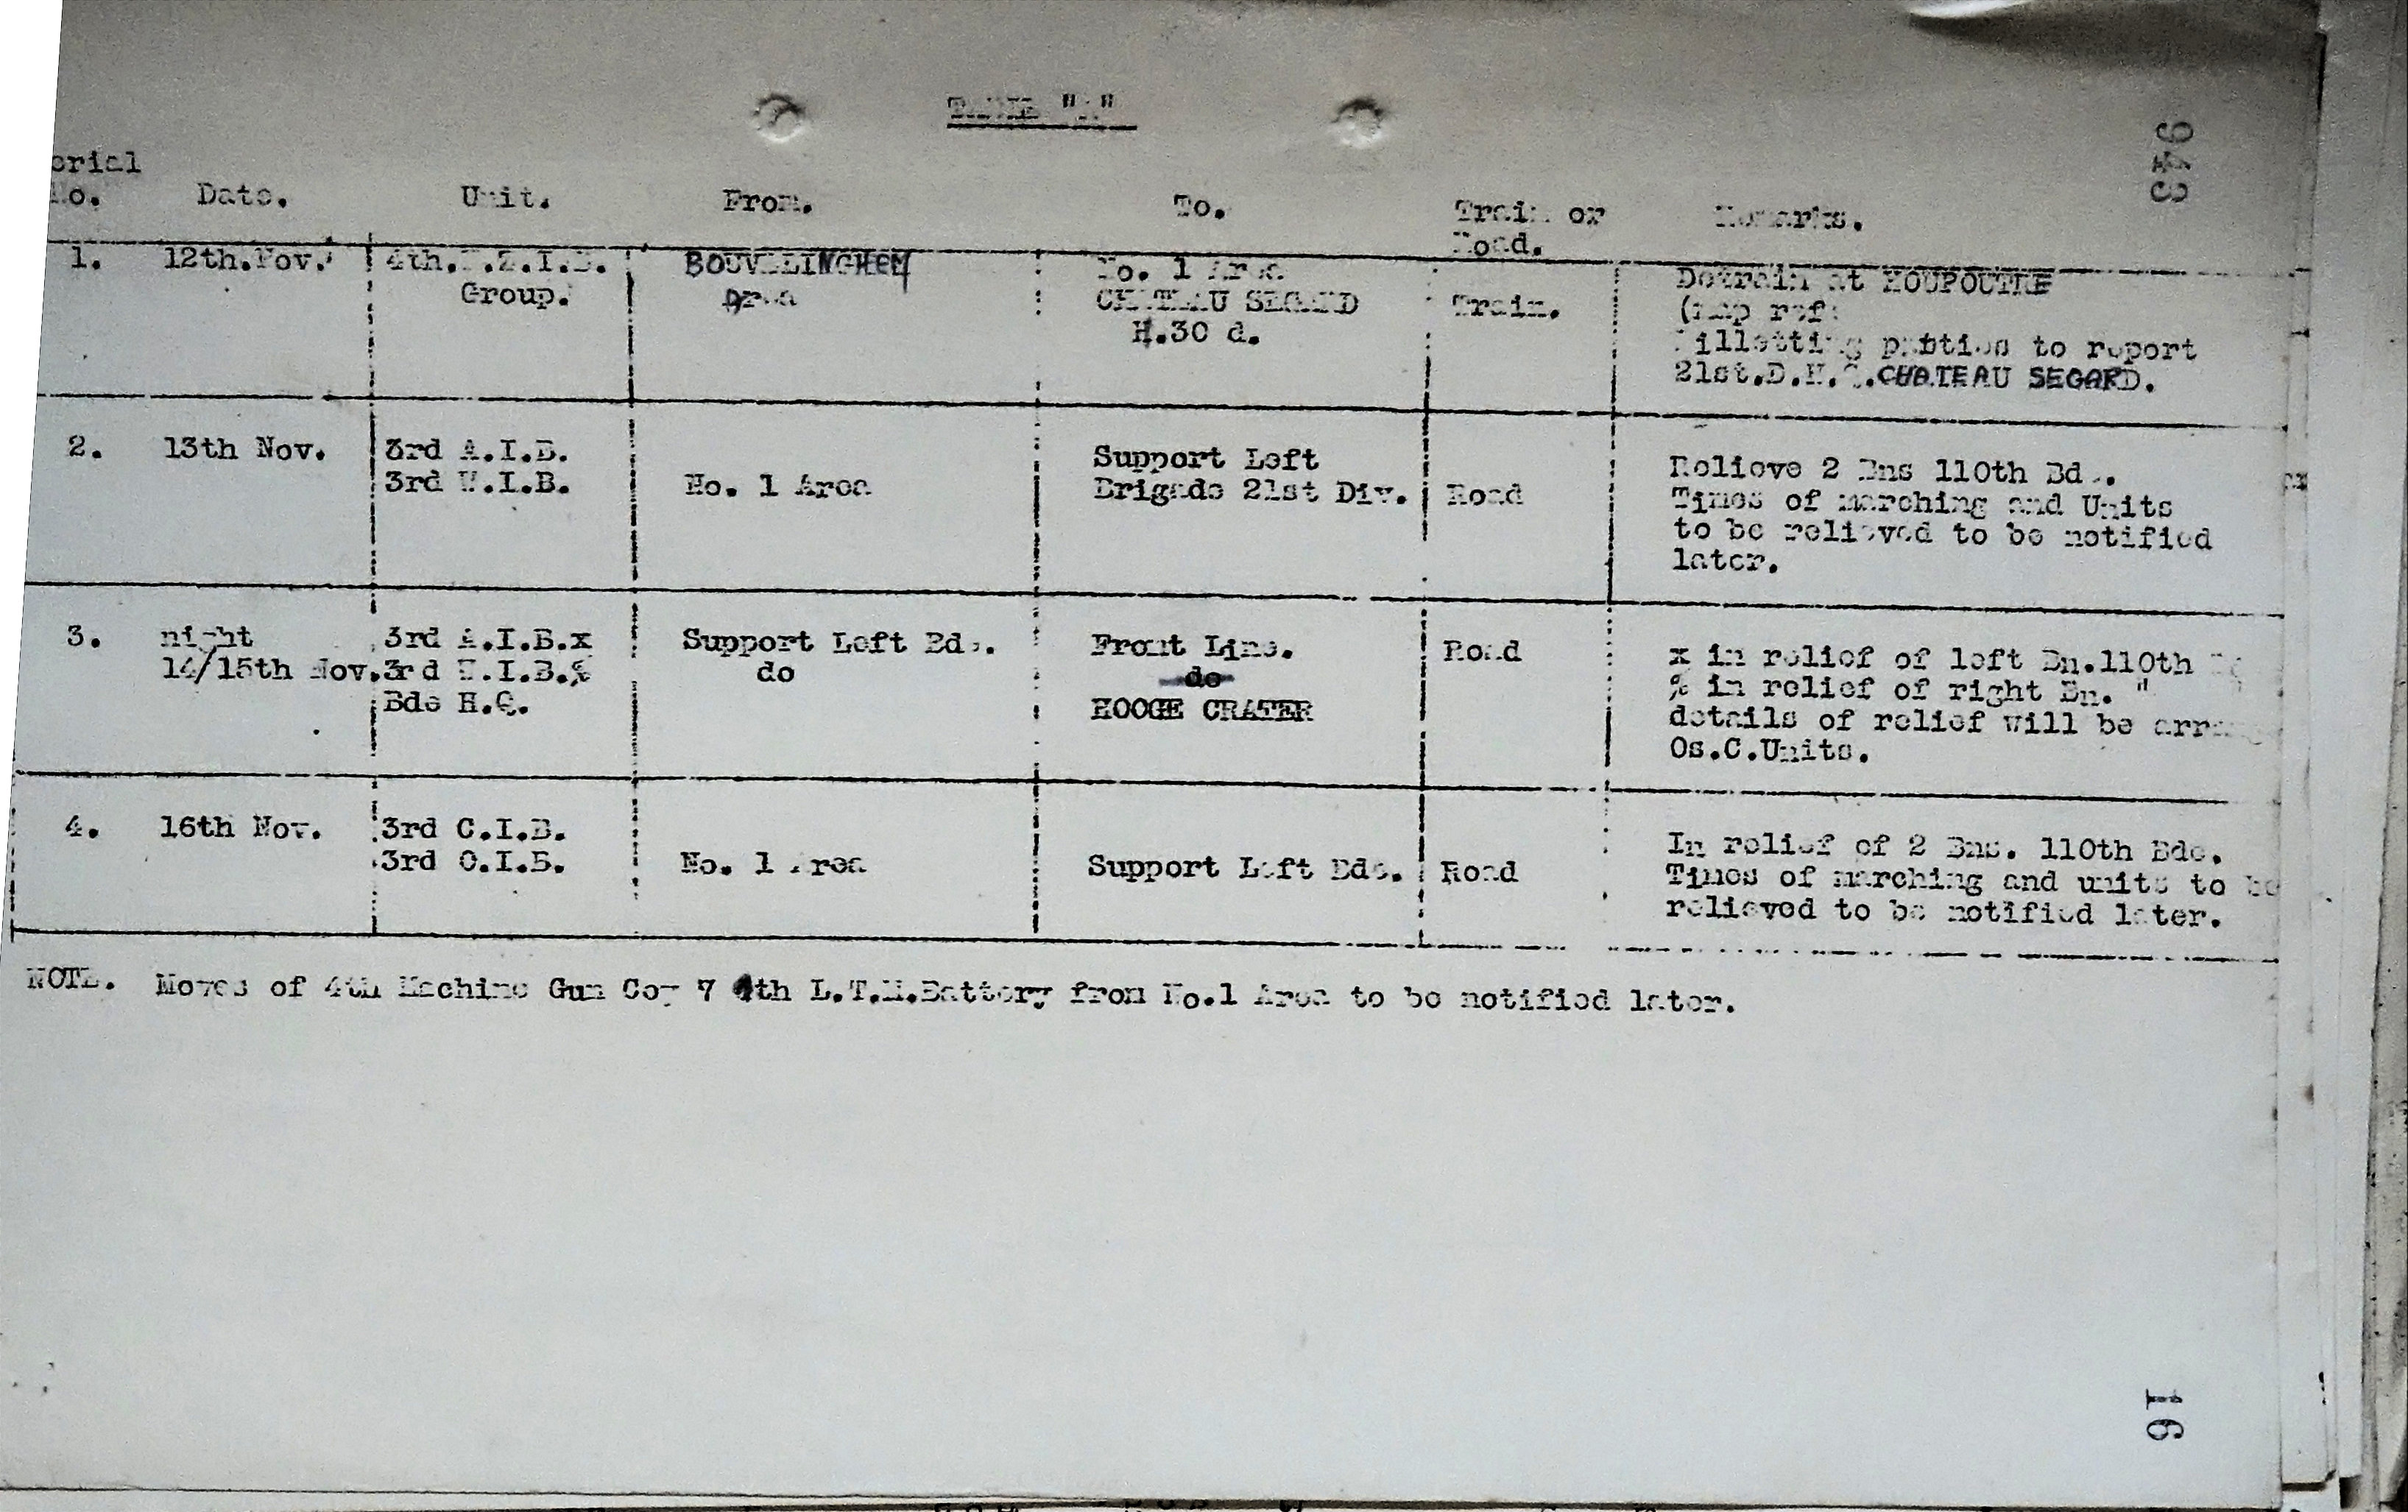 TABLE "A"
943
erial
No. Date. Unit. From. To. Train or Road. Remarks.
1. 12th.Nov. 4th.N.Z.I.B. Group. BOUVELINGHEM Area No. 1 Area CHATEAU SEGARD H.30 d. Train. Detrain at HOUPOUTRE
(map ref:
illetting parties to report
21st.D.H.Q.CHATEAU SEGARD.
2. 13th Nov. 3rd A.I.B. Support Left
3rd W.I.B. No. 1 Area Brigade 21st Div. Road Relieve 2 Bns 110th Bde.
Times of marching and Units
to be relieved to be notified
later.
3. night 3rd A.I.B.x Support Left Bde. Front Line. Road x in relief of left Bn.110th
14/15th Nov. 3rd W.I.B.% do do % in relief of right Bn. "
Bde H.Q. HOOGE CRATER details of relief will be
Os.C.Units.
4. 16th Nov. 3rd C.I.B. In relief of 2 Bns. 110th Bde.
3rd O.I.B. No. 1 Area Support Left Bde. Road Times of marching and units to be
relieved to be notified later.
NOTE. Moves of 4th Machine Gun Coy 7 4th L.T.M.Battery from No.1 Area to be notified later.
16